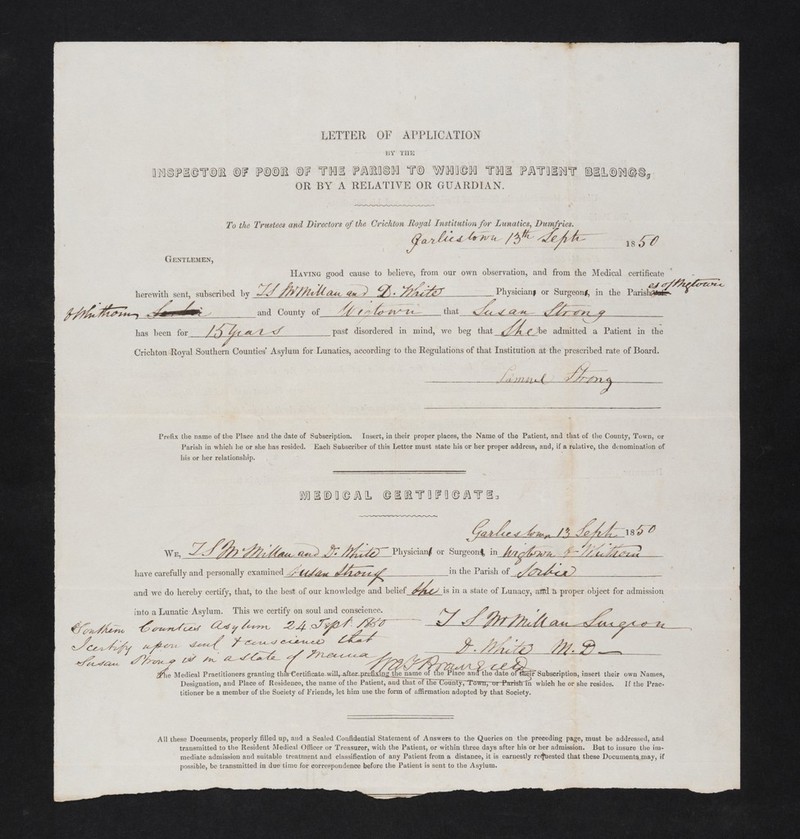 LETTER OF APPLICATION
BY THE
INSPECTOR OF POOR OF THE PARISH TO WHICH THE PATIENT BELONGS,
OR BY A RELATIVE OR GUARDIAN.
To the Trustees and Directors of the Crichton Royal Institution for Lunatics, Dumfries.
Garliestown 13th Septr 1850
GENTLEMEN,
HAVING good cause to believe, from our own observation, and from the Medical certificate
herewith sent, subscribed by T S McMillan and D. White Physicians or Surgeons, in the Parishes of Wigtown
& Whithorn and County of Wigtown that Susan Strong
has been for 15 years past disordered in mind, we beg that She be admitted a Patient in the
Crichton Royal Southern Counties' Asylum for Lunatics, according to the Regulations of that Institution at the prescribed rate of Board.
Samuel Strong
Prefix the name of the Place and the date of Subscription. Insert, in their proper places, the Name of the Patient, and that of the County, Town, or
Parish in which he or she has resided. Each Subscriber of this Letter must state his or her proper address, and, if a relative, the denomination of
his or her relationship.
MEDICAL CERTIFICATE.
Garliestown 13 Septr 1850
WE, T S McMillan and D. White Physician or Surgeons, in Wigtown & Whithorn
have carefully and personally examined Susan Strong in the Parish of Sorbie
and we do hereby certify, that, to the best of our knowledge and belief She is in a state of Lunacy, and a proper object for admission
into a Lunatic Asylum. This we certify on soul and conscience.
T S McMillan Surgeon
D. White M.D
Southern Counties Asylum 24 Sept 1850
I certify upon soul & conscience that
Susan Strong is in a state of Mania
The Medical Practitioners granting this Certificate will, after prefixing the name of the Place and the date of their Subscription, insert their own Names,
Designation, and Place of Residence, the name of the Patient, and that of the County, Town, or Parish in which he or she resides. If the Prac-
titioner be a member of the Society of Friends, let him use the form of affirmation adopted by that Society.
All these Documents, properly filled up, and a Sealed Confidential Statement of Answers to the Queries on the preceding page, must be addressed, and
transmitted to the Resident Medical Officer or Treasurer, with the Patient, or within three days after his or her admission. But to insure the im-
mediate admission and suitable treatment and classification of any Patient from a distance, it is earnestly requested that these Documents may, if
possible, be transmitted in due time for correspondence before the Patient is sent to the Asylum.